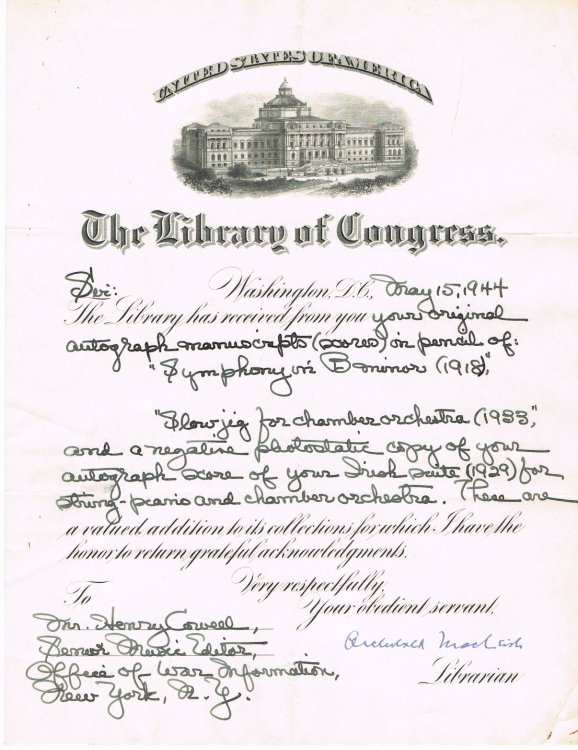 UNITED STATES OF AMERICA
The Library of Congress.
Sir: Washington, D.C., May 15, 1944
The Library has received from you your original
autograph manuscripts (scores) in pencil of:
"Symphony in B minor (1918)",
"Slow jig for chamber orchestra (1933)",
and a negative photostatic copy of your
autograph score of your Irish suite (1929) for
string-piano and chamber orchestra. These are
a valued addition to its collections for which I have the
honor to return grateful acknowledgments.
Very respectfully,
To Your obedient servant,
Mr. Henry Cowell,
Senior Music Editor,
Office of War Information,
New York, N.Y.
Archibald MacLeish
Librarian